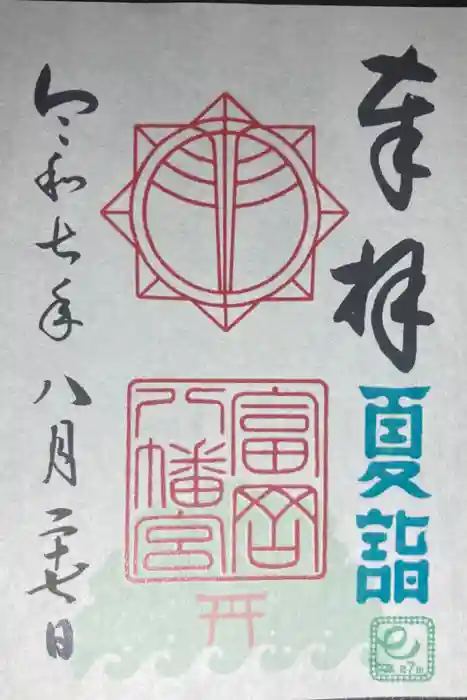 奉拝
夏詣
富岡
八幡宮
令和七年八月二十七日